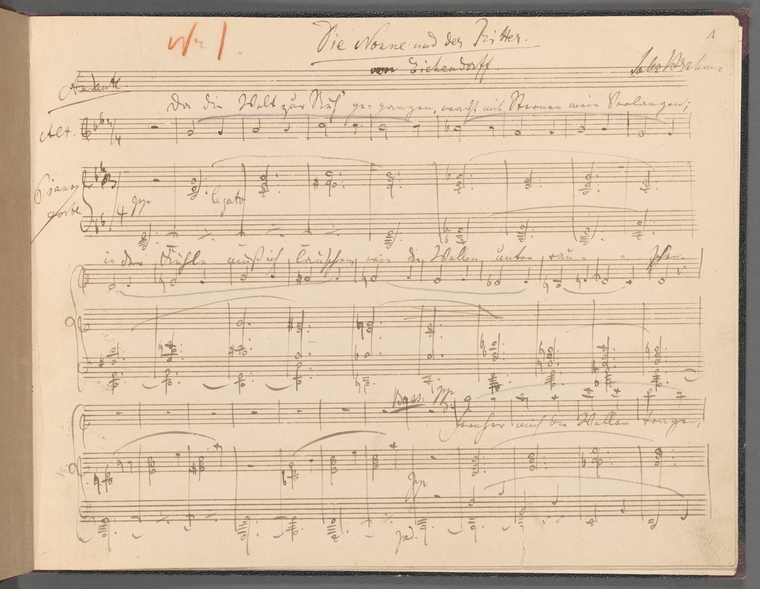 No 1.
Die Nonne und der Ritter.
1
von Eichendorff
Johs Brahms
Andante
Da die Welt zur Ruh' gegangen, wacht mit Sternen mein Verlangen;
Alt.
Pianoforte
pp legato
in der Kühle muß ich lauschen, wie die Wellen unten rau - - schen.
Bass. pp
Fernher mich die Wellen tragen,
pp
Ped.